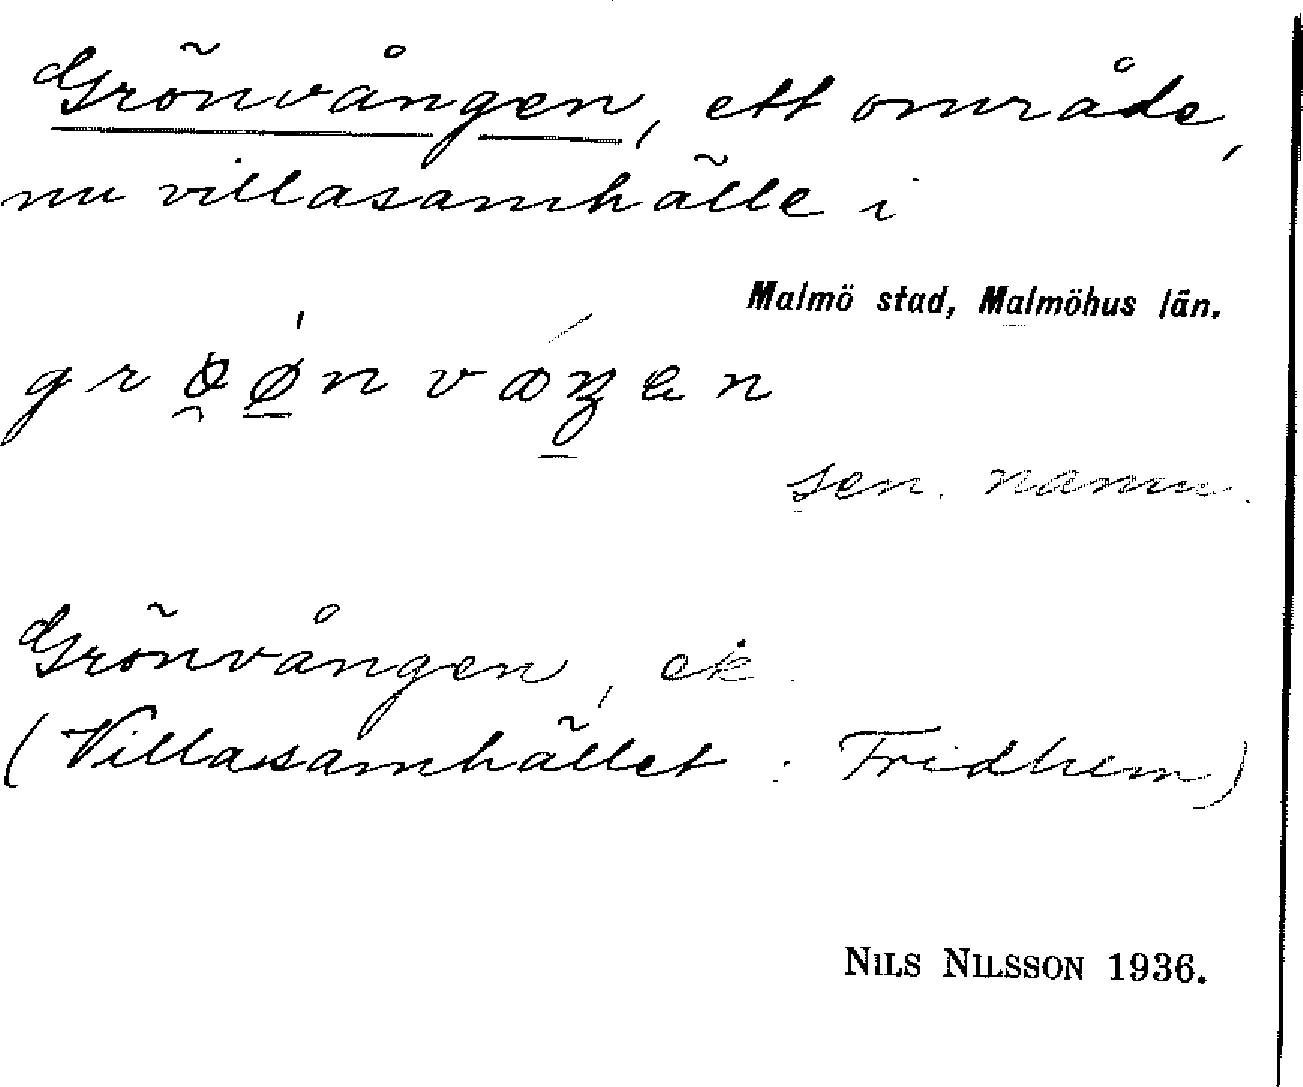 Grönvången, ett område,
nu villasamhälle i
Malmö stad, Malmöhus län.
sen. namn.
Grönvången, ek.
(Villasamhället: Fridhem)
NILS NILSSON 1936.